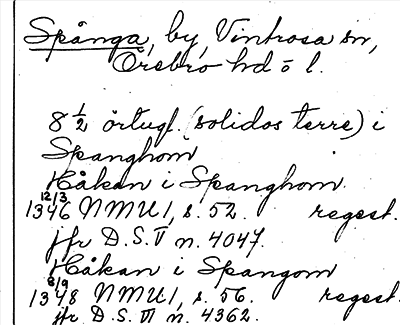 Spånga, by, Vintrosa sn,
Örebro hd o l.
8 1/2 örtugl. (solidos terre) i
Spanghom
Håkan i Spanghom.
12/3 1346 NMU 1, s. 52. regest.
jfr D.S. V n. 4047.
Håkan i Spangom
8/9 1348 NMU 1, s. 56. regest.
jfr D.S. VI n. 4362.